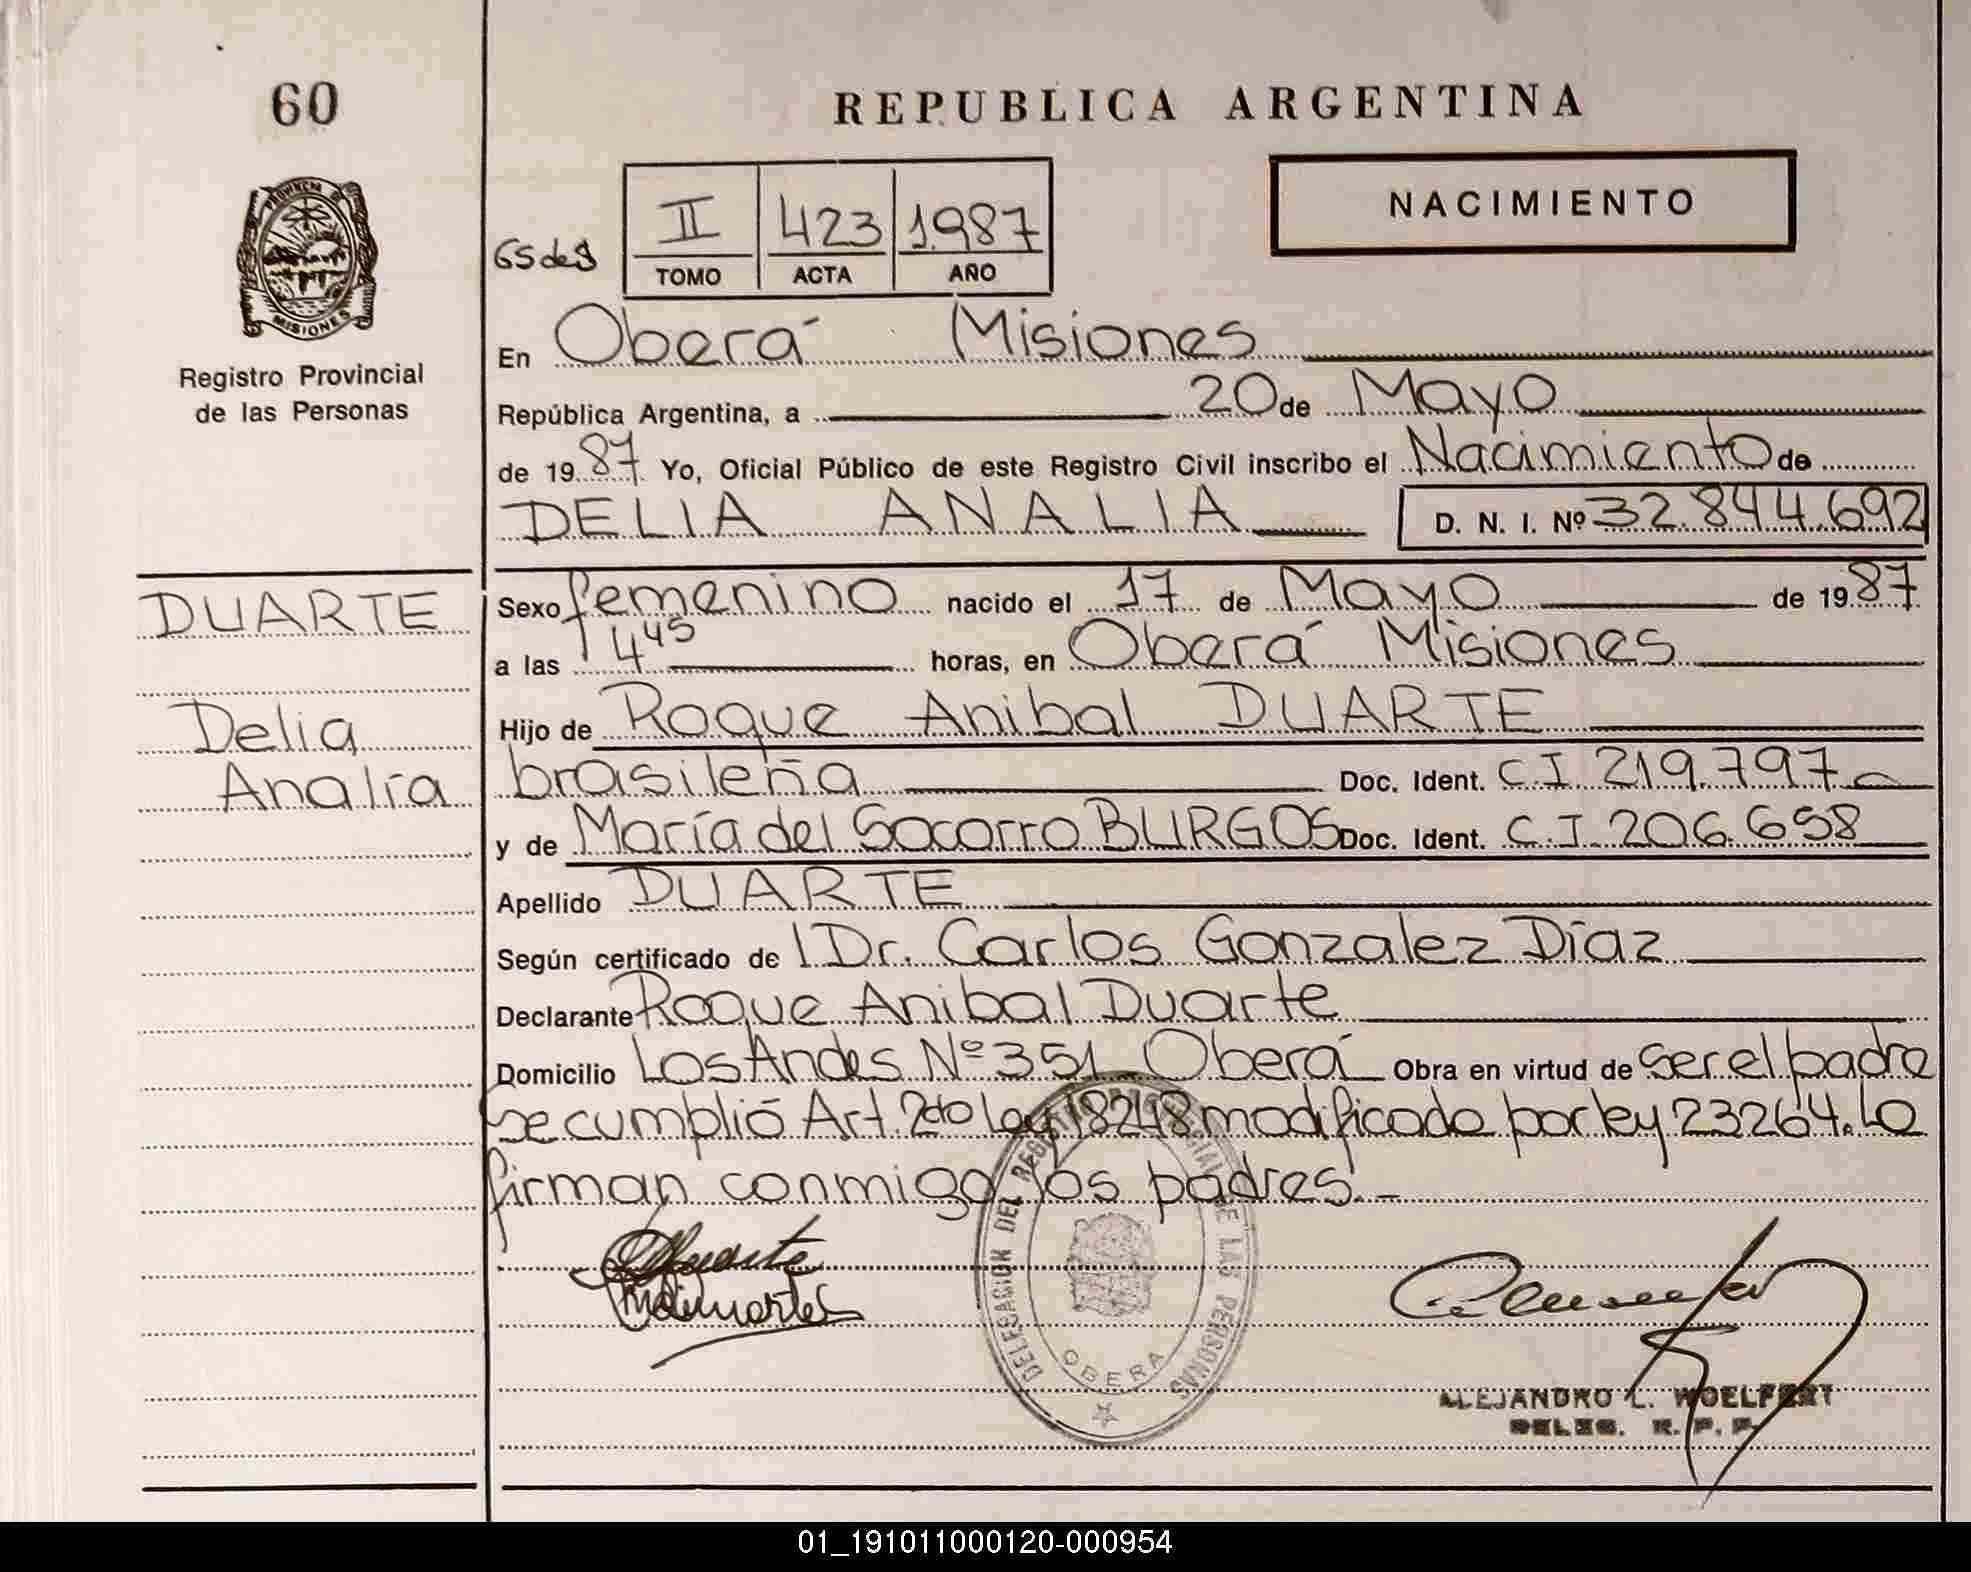 60
REPUBLICA ARGENTINA
NACIMIENTO
PROVINCIA DE
MISIONES
Registro Provincial
de las Personas
II 423 1987
TOMO ACTA AÑO
En Oberá Misiones
República Argentina, a 20 de Mayo
de 1987 Yo, Oficial Público de este Registro Civil inscribo el Nacimiento de
DELIA ANALIA D. N. I. Nº 32.844.692
DUARTE
Delia
Analía
Sexo femenino nacido el 17 de Mayo de 1987
a las 4 45 horas, en Oberá Misiones
Hijo de Roque Anibal DUARTE
brasileña Doc. Ident. C.I. 219.797
y de María del Socorro BURGOS Doc. Ident. C.I. 206.658
Apellido DUARTE
Según certificado de l Dr. Carlos Gonzalez Díaz
Declarante Roque Anibal Duarte
Domicilio Los Andes Nº 351 Oberá Obra en virtud de ser el padre
se cumplió Art. 2do Ley 18248 modificado por ley 23264. Lo
firman conmigo los padres.-
DELEGACION DEL REGISTRO PROVINCIAL DE LAS PERSONAS
OBERA
ALEJANDRO L. WOELFERT
DELEG. R. P. P.
01_191011000120-000954